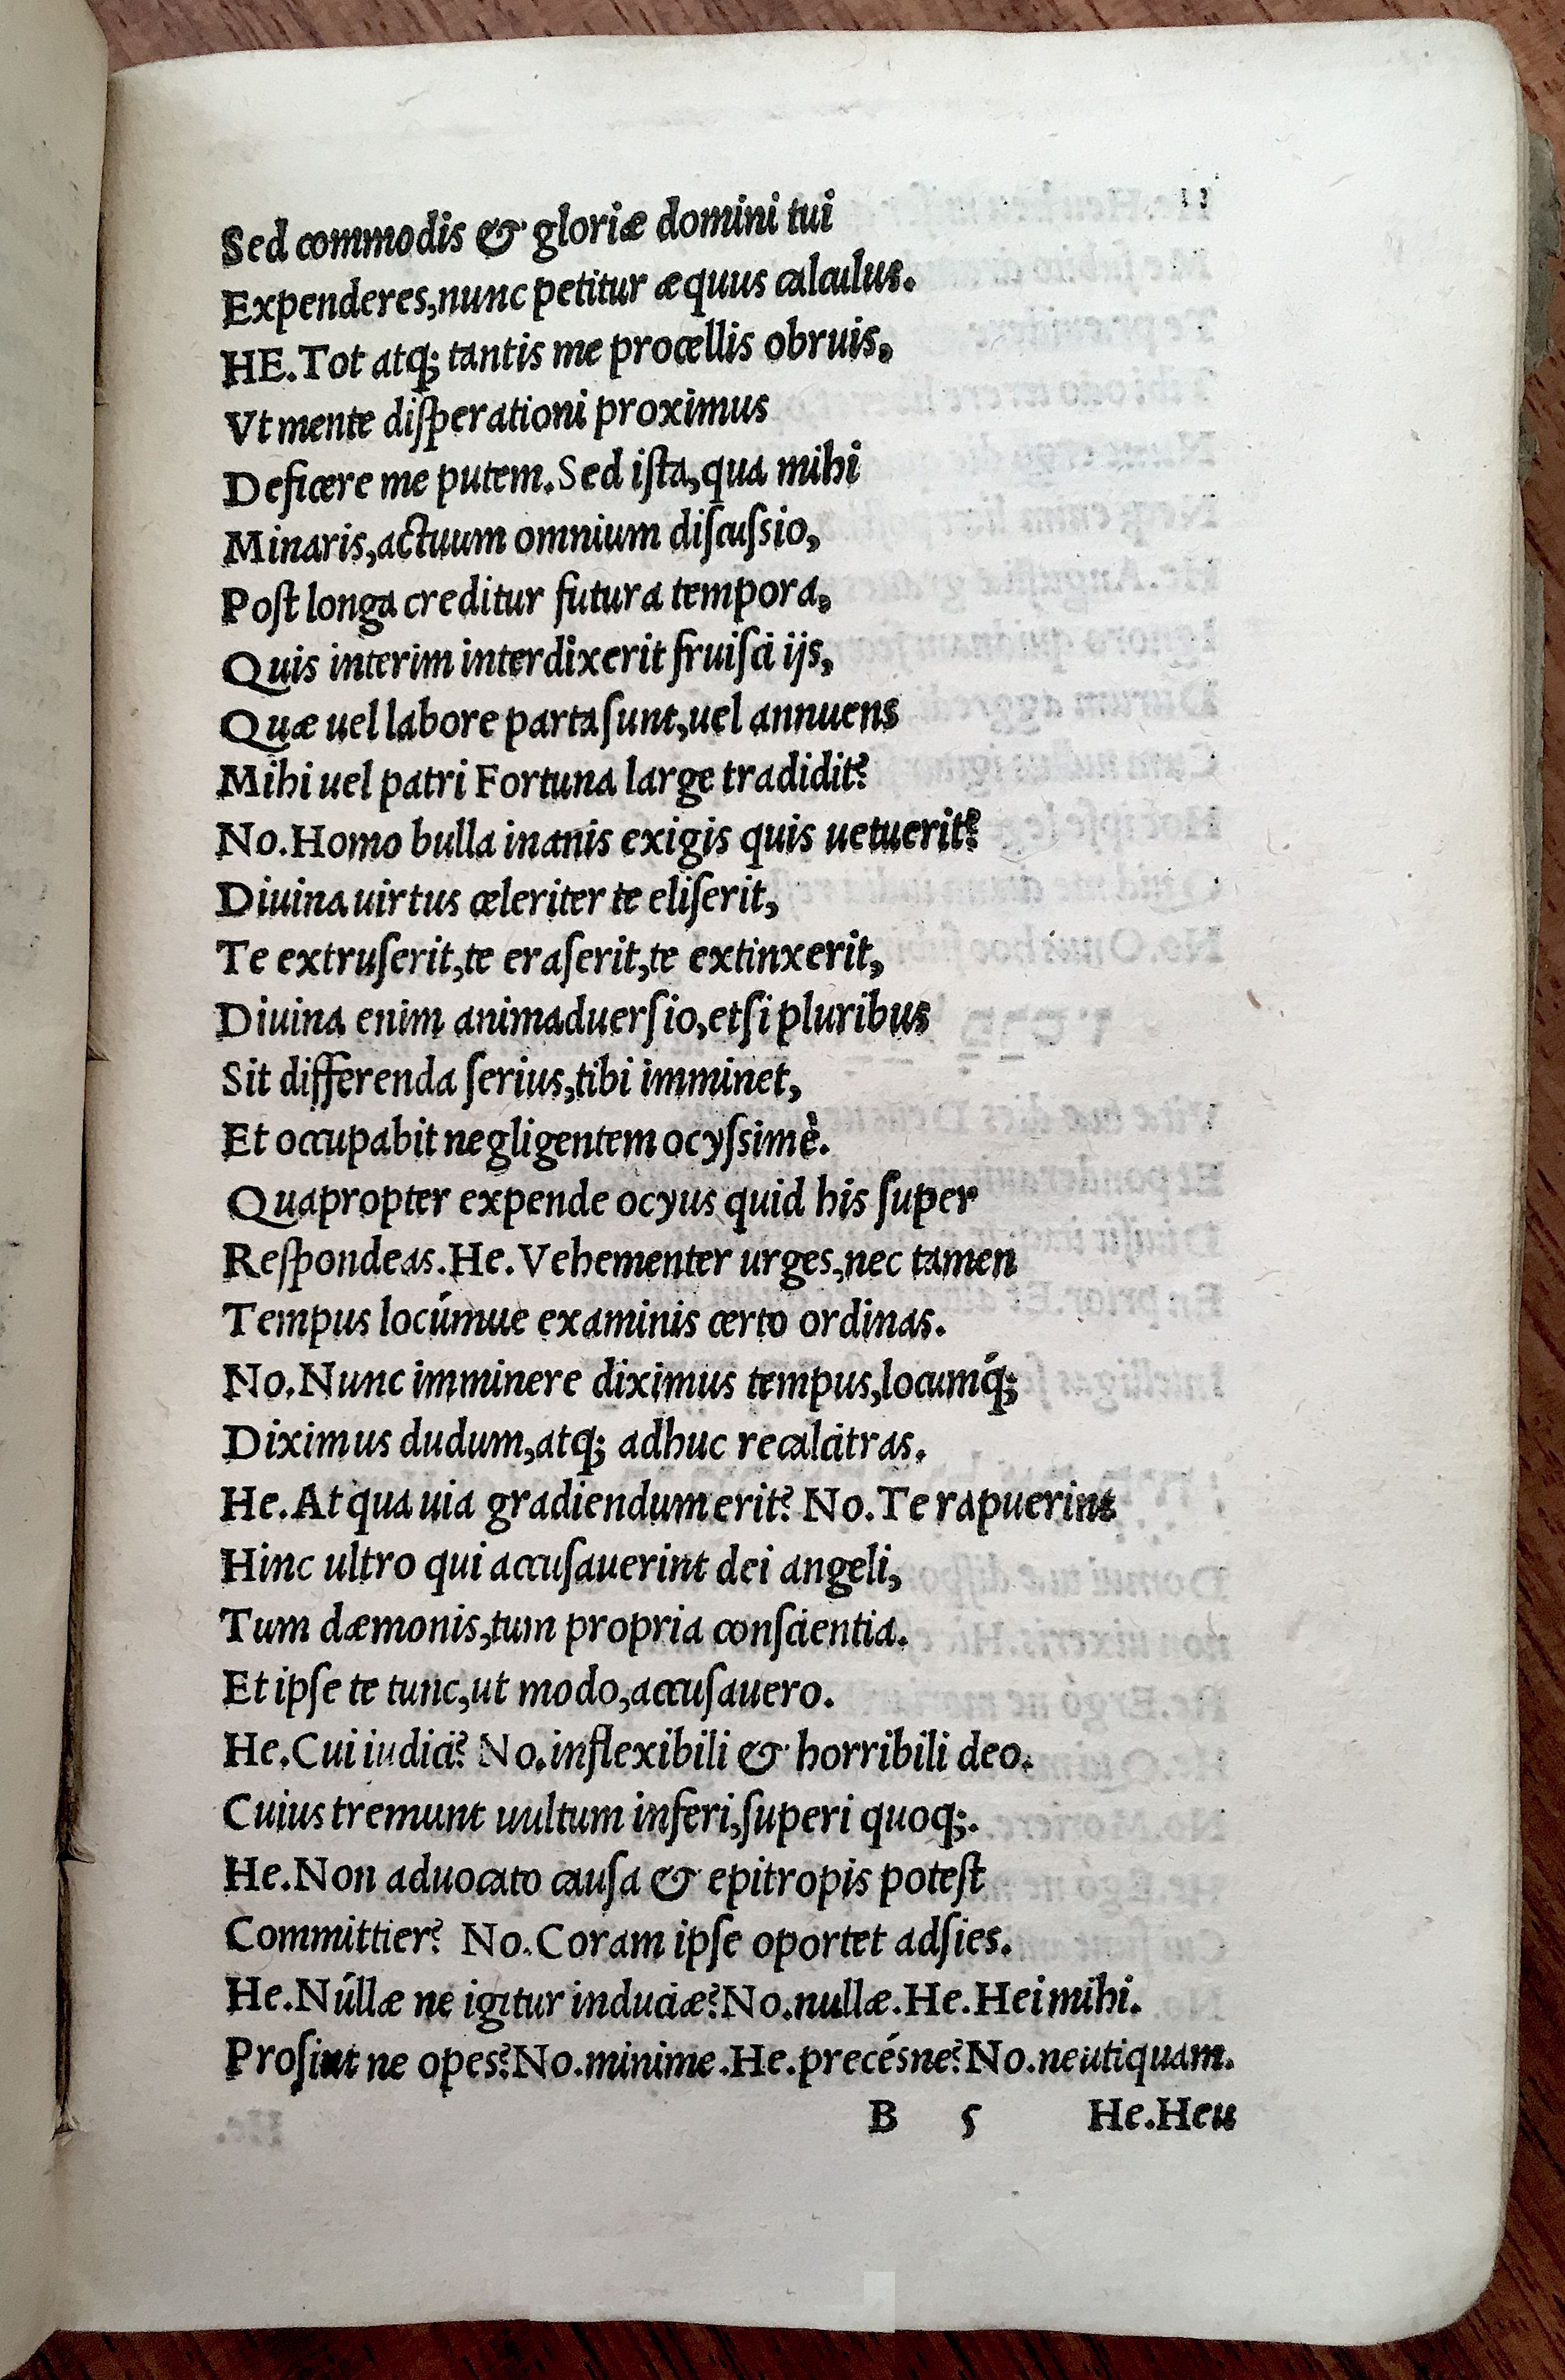 Sed commodis & gloriæ domini tui
Expenderes,nunc petitur æquus calculus.
HE.Tot atq; tantis me procellis obruis,
Vt mente diſperationi proximus
Deficere me putem.Sed iſta,qua mihi
Minaris,actuum omnium diſcuſsio,
Poſt longa creditur futura tempora,
Quis interim interdixerit fruiſci ijs,
Quæ uel labore parta ſunt,uel annuens
Mihi uel patri Fortuna large tradidit?
No.Homo bulla inanis exigis quis uetuerit?
Diuina uirtus celeriter te eliſerit,
Te extruſerit,te eraſerit,te extinxerit,
Diuina enim animaduerſio,etſi pluribus
Sit differenda ſerius,tibi imminet,
Et occupabit negligentem ocyſsimè.
Quapropter expende ocyus quid his ſuper
Reſpondeas.He.Vehementer urges,nec tamen
Tempus locúmue examinis certo ordinas.
No.Nunc imminere diximus tempus,locumq́;
Diximus dudum,atq; adhuc recalcitras.
He.At qua uia gradiendum erit? No.Te rapuerint
Hinc ultro qui accuſauerint dei angeli,
Tum dæmonis,tum propria conſcientia.
Et ipſe te tunc,ut modo,accuſauero.
He.Cui iudici? No.inflexibili & horribili deo.
Cuius tremunt uultum inferi,ſuperi quoq;.
He.Non aduocato cauſa & epitropis poteſt
Committier? No.Coram ipſe oportet adſies.
He.Núllæ ne igitur induciæ?No.nullæ.He.Hei mihi.
Proſint ne opes?No.minime.He.precésne?No.neutiquam.
B 5 He.Heu